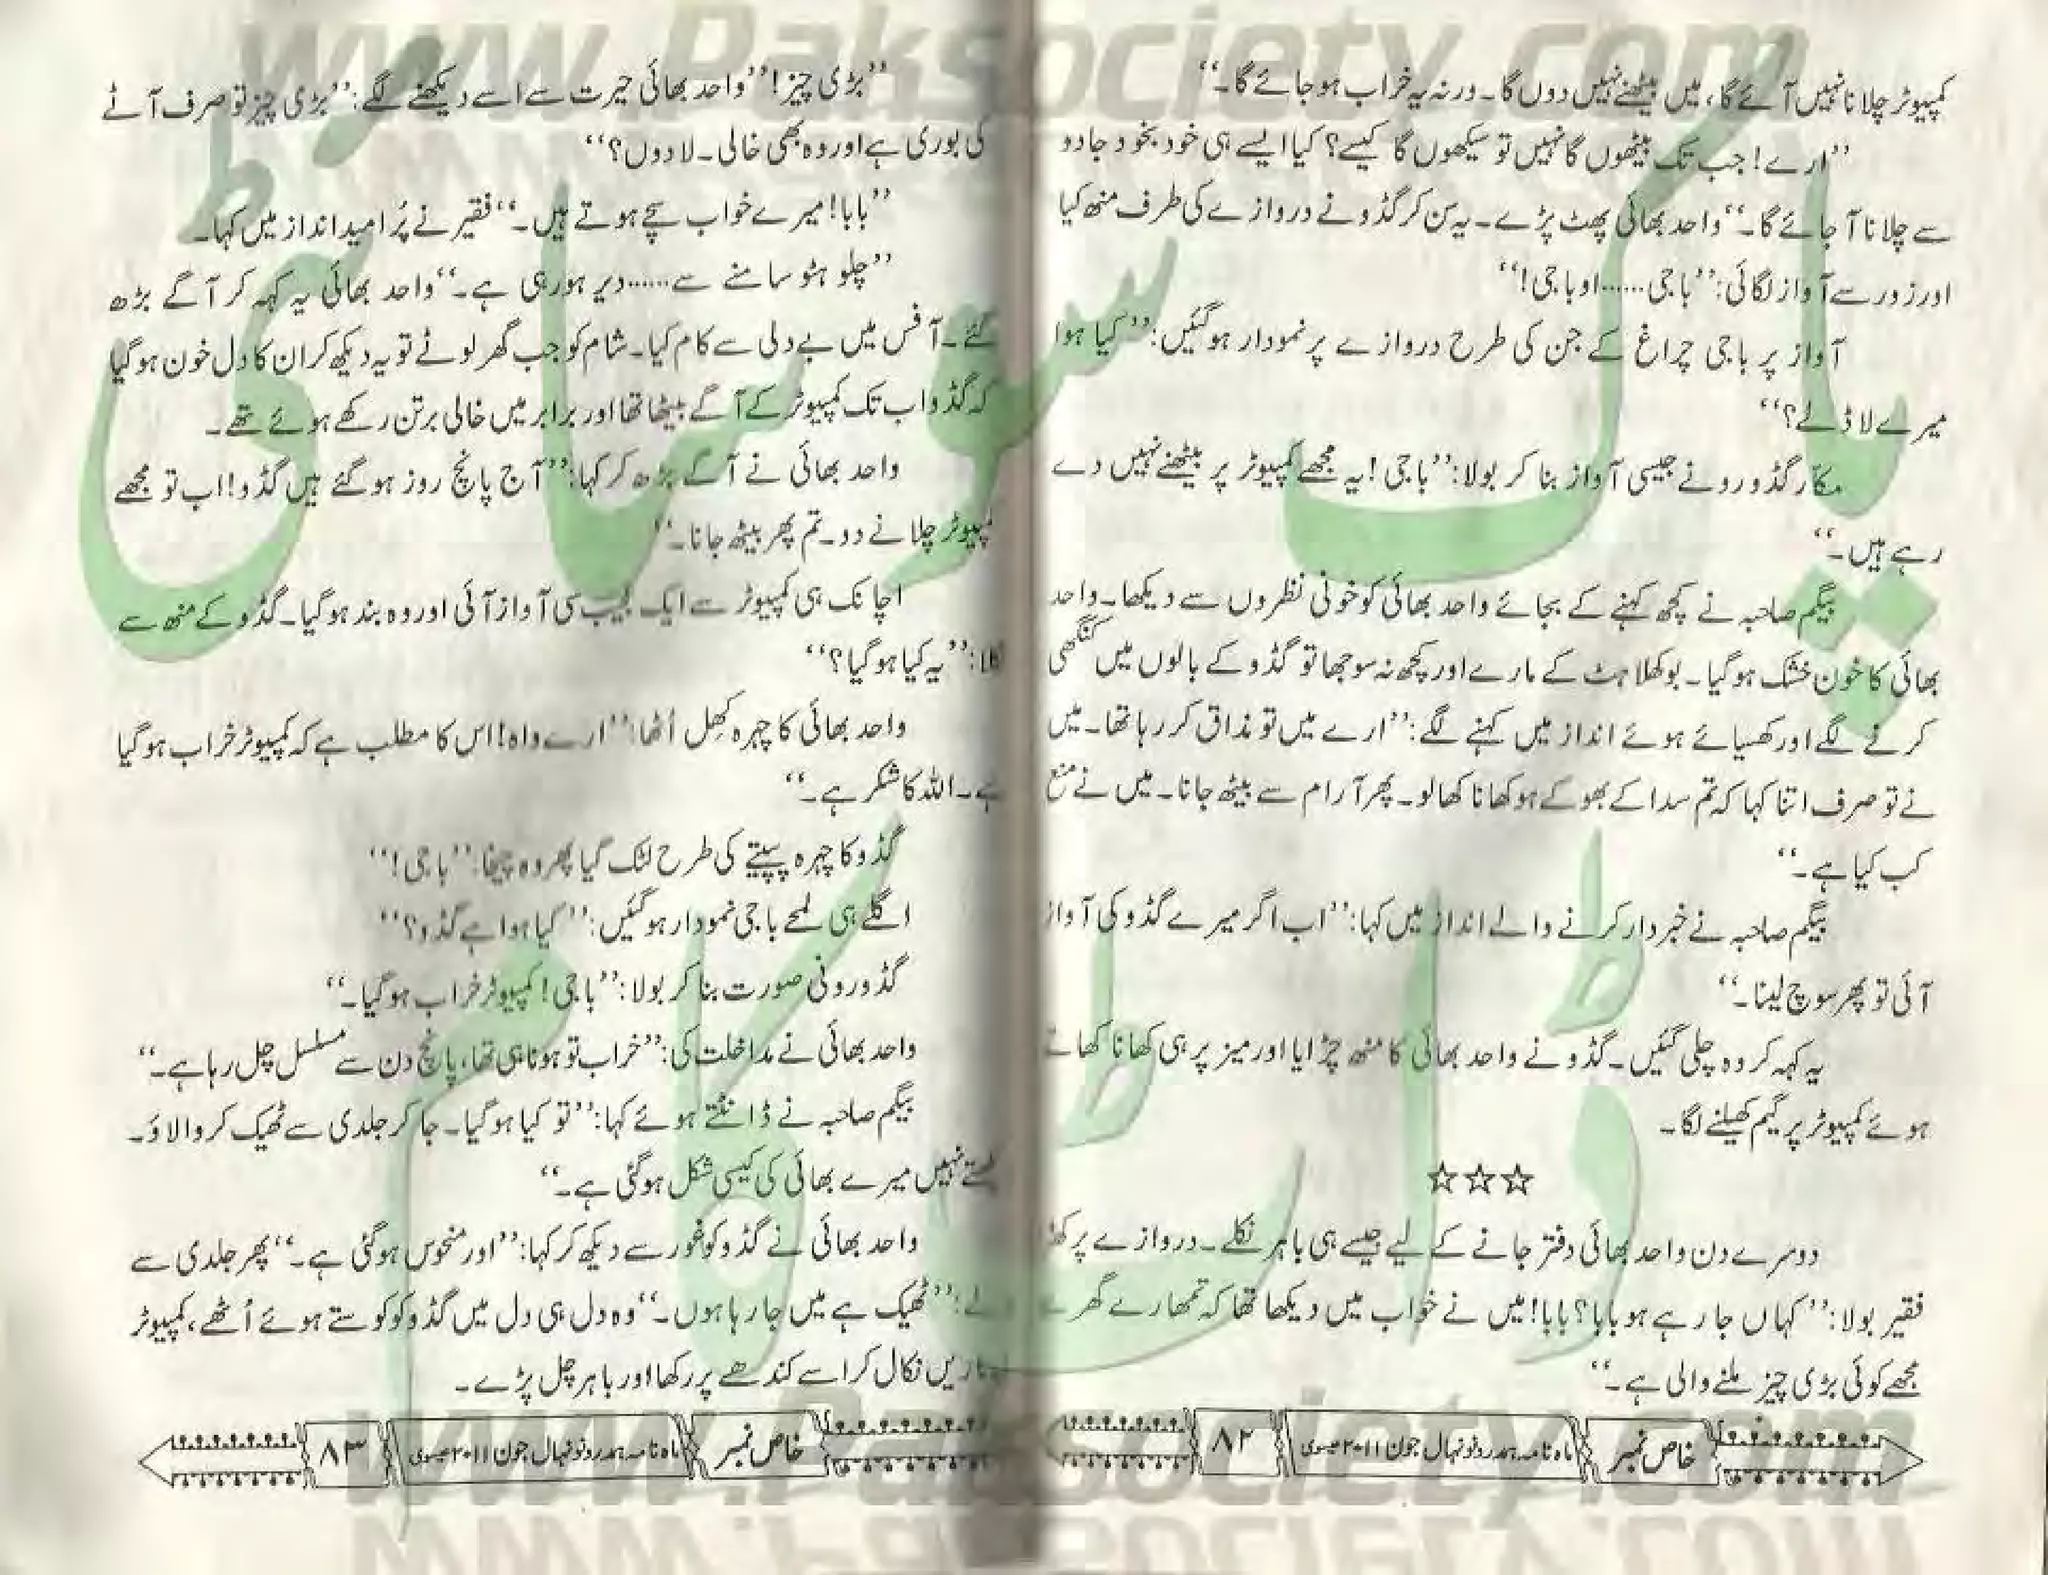 www.Paksociety.com
کمپیوٹر چلانا نہیں آئے گا، میں بیٹھنے نہیں دوں گا۔ ورنہ یہ خراب ہو جائے گا۔‘‘
’’ارے! جب تک بیٹھوں گا نہیں تو سیکھوں گا کیسے؟ کیا ایسے ہی خود بخود جادو
سے چلانا آ جائے گا۔‘‘ واحد بھائی پھٹ پڑے۔ یہ سن کر گڈو نے دروازے کی طرف منھ کیا
اور زور سے آواز لگائی: ’’باجی...... او باجی!‘‘
آواز پر باجی چراغ کے جن کی طرح دروازے پر نمودار ہو گئیں: ’’کیا ہوا
میرے لاڈلے؟‘‘
مکّار گڈو رونے جیسی آواز بنا کر بولا: ’’باجی! یہ مجھے کمپیوٹر پر بیٹھنے نہیں دے
رہے ہیں۔‘‘
بیگم صاحبہ نے کچھ کہنے کے بجائے واحد بھائی کو خونی نظروں سے دیکھا۔ واحد
بھائی کا خون خشک ہو گیا۔ بوکھلاہٹ کے مارے اور کچھ نہ سوجھا تو گڈو کے بالوں میں کنگھی
کرنے لگے اور کھسیائے ہوئے انداز میں کہنے لگے: ’’ارے میں تو مذاق کر رہا تھا۔ میں
نے تو صرف اتنا کہا کہ تم سدا کے بھوکے ہو کھانا کھا لو۔ پھر آرام سے بیٹھ جانا۔ میں نے منع
کب کیا ہے۔‘‘
بیگم صاحبہ نے خبردار کرنے والے انداز میں کہا: ’’اب اگر میرے گڈو کی آواز
آئی تو پھر سوچ لینا۔‘‘
یہ کہہ کر وہ چلی گئیں۔ گڈو نے واحد بھائی کا منھ چڑایا اور میز پر ہی کھانا کھاتے
ہوئے کمپیوٹر پر گیم کھیلنے لگا۔
☆☆☆
دوسرے دن واحد بھائی دفتر جانے کے لیے جیسے ہی باہر نکلے۔ دروازے پر کھڑا
فقیر بولا: ’’کہاں جا رہے ہو بابا؟ بابا! میں نے خواب میں دیکھا تھا کہ تمھارے گھر سے
مجھے کوئی بڑی چیز ملنے والی ہے۔‘‘
خاص نمبر ماہ نامہ ہمدرد نونہال جون ۲۰۱۱ عیسوی ۸۲
’’بڑی چیز!‘‘ واحد بھائی حیرت سے اسے دیکھنے لگے: ’’بڑی چیز تو صرف آٹے
کی بوری ہے اور وہ بھی خالی۔ لا دوں؟‘‘
’’بابا! میرے خواب سچے ہوتے ہیں۔‘‘ فقیر نے پُر امید انداز میں کہا۔
’’چلو ہٹو سامنے سے...... دیر ہو رہی ہے۔‘‘ واحد بھائی یہ کہہ کر آگے بڑھ
گئے۔ آفس میں بے دلی سے کام کیا۔ شام کو جب گھر لوٹے تو یہ دیکھ کر ان کا دل خون ہو گیا
کہ گڈو اب تک کمپیوٹر کے آگے بیٹھا تھا اور برابر میں خالی برتن رکھے ہوئے تھے۔
واحد بھائی نے آگے بڑھ کر کہا: ’’آج پانچ روز ہو گئے ہیں گڈو! اب تو مجھے
کمپیوٹر چلانے دو۔ تم پھر بیٹھ جانا۔‘‘
اچانک ہی کمپیوٹر سے ایک عجیب سی آواز آئی اور وہ بند ہو گیا۔ گڈو کے منھ سے
نکلا: ’’یہ کیا ہو گیا؟‘‘
واحد بھائی کا چہرہ کھِل اُٹھا: ’’ارے واہ! اس کا مطلب ہے کہ کمپیوٹر خراب ہو گیا
ہے۔ اللہ کا شکر ہے۔‘‘
گڈو کا چہرہ پپیتے کی طرح لٹک گیا پھر وہ چیخا: ’’باجی!‘‘
اگلے ہی لمحے باجی نمودار ہو گئیں: ’’کیا ہوا ہے گڈو؟‘‘
گڈو رونی صورت بنا کر بولا: ’’باجی! کمپیوٹر خراب ہو گیا۔‘‘
واحد بھائی نے مداخلت کی: ’’خراب تو ہونا ہی تھا، پانچ دن سے مسلسل چل رہا ہے۔‘‘
بیگم صاحبہ نے ڈانٹتے ہوئے کہا: ’’تو کیا ہو گیا۔ جا کر جلدی سے ٹھیک کروا لاؤ۔
نہیں میرے بھائی کی کیسی شکل ہو گئی ہے۔‘‘
واحد بھائی نے گڈو کو غور سے دیکھ کر کہا: ’’اور منحوس ہو گئی ہے۔‘‘ پھر جلدی سے
’’ٹھیک ہے میں جا رہا ہوں۔‘‘ وہ دل ہی دل میں گڈو کو کوستے ہوئے اُٹھے، کمپیوٹر
تاریں نکال کر اسے کندھے پر رکھا اور باہر چل پڑے۔
خاص نمبر ماہ نامہ ہمدرد نونہال جون ۲۰۱۱ عیسوی ۸۳
پاک سوسائٹی
ڈاٹ کام
www.Paksociety.com